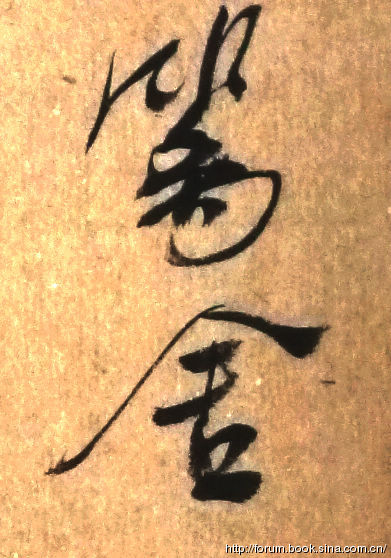 舍
http://forum.book.sina.com.cn/